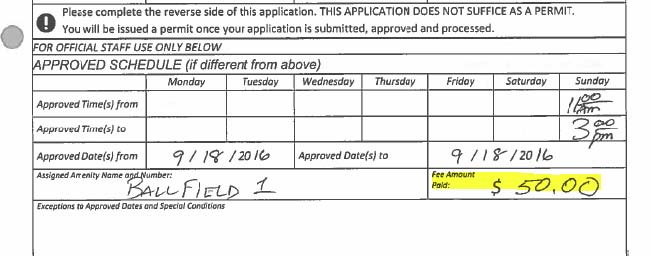 Please complete the reverse side of this application. THIS APPLICATION DOES NOT SUFFICE AS A PERMIT.
You will be issued a permit once your application is submitted, approved and processed.
FOR OFFICIAL STAFF USE ONLY BELOW
APPROVED SCHEDULE (if different from above)
Monday Tuesday Wednesday Thursday Friday Saturday Sunday
Approved Time(s) from 11:00 Am
Approved Time(s) to 3:00 pm
Approved Date(s) from 9/18/2016 Approved Date(s) to 9/18/2016
Assigned Amenity Name and Number: BALLFIELD 1 Fee Amount
Paid: $ 50.00
Exceptions to Approved Dates and Special Conditions